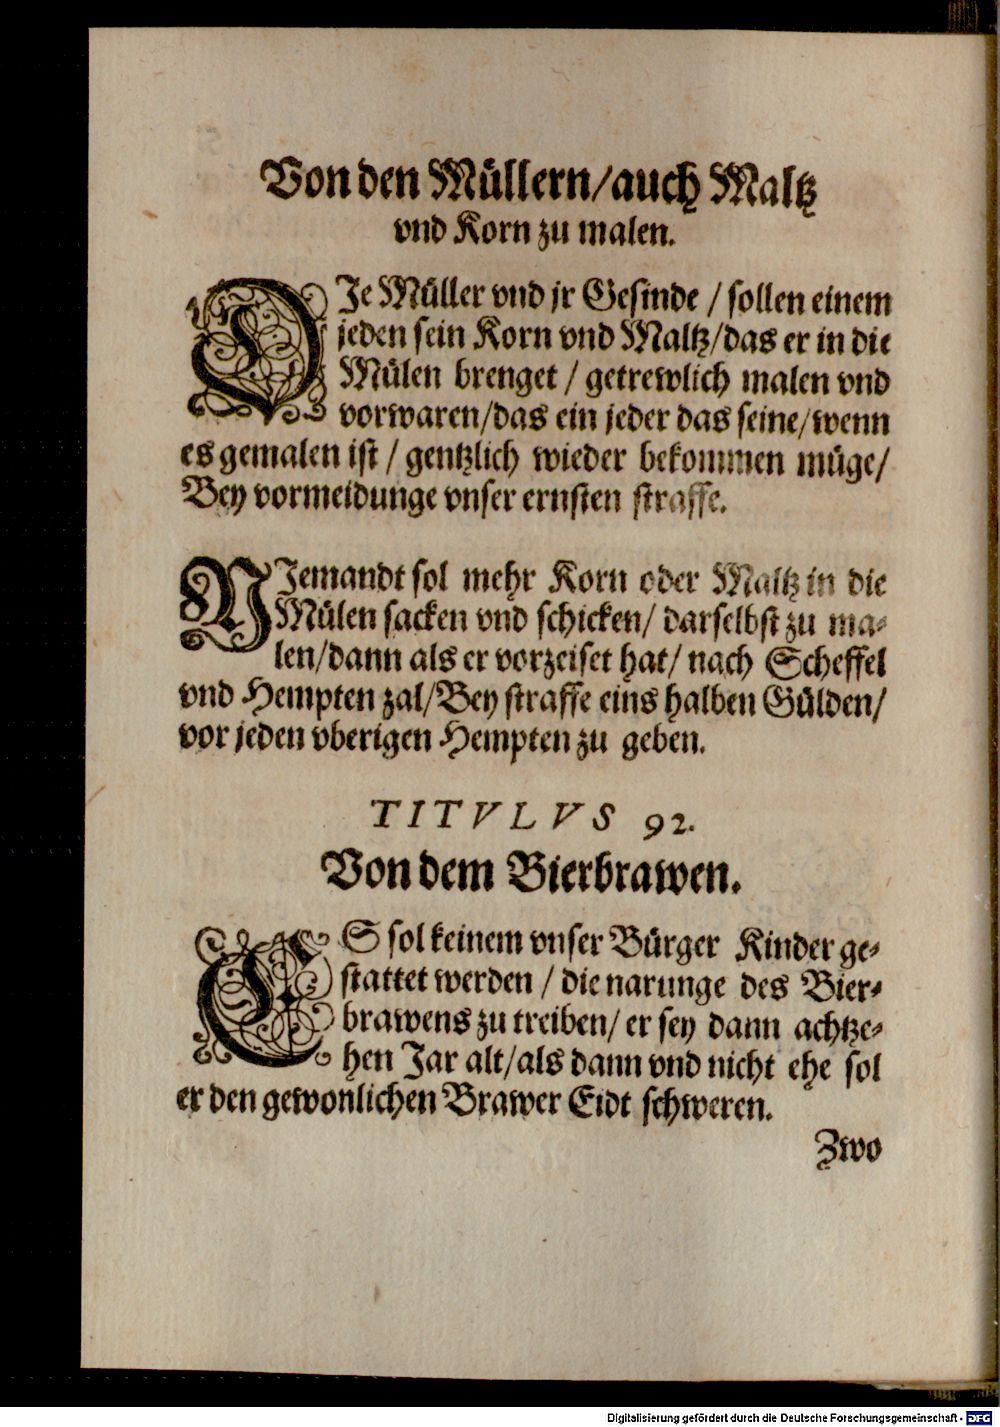 Von den Müllern/auch Maltz
vnd Korn zu malen.
DJe Müller vnd jr Gesinde / sollen einem
jeden sein Korn vnd Maltz/das er in die
Mülen brenget / getrewlich malen vnd
vorwaren/das ein jeder das seine/wenn
es gemalen ist / gentzlich wieder bekommen müge/
Bey vormeidunge vnser ernsten straffe.
NJemandt sol mehr Korn oder Maltz in die
Mülen sacken vnd schicken/ darselbst zu ma-
len/dann als er vorzeiset hat/ nach Scheffel
vnd Hempten zal/Bey straffe eins halben Gülden/
vor jeden vberigen Hempten zu geben.
TITVLVS 92.
Von dem Bierbrawen.
ES sol keinem vnser Bürger Kinder ge-
stattet werden / die narunge des Bier-
brawens zu treiben/ er sey dann achtze-
hen Jar alt/als dann vnd nicht ehe sol
er den gewonlichen Brawer Eidt schweren.
Zwo
Digitalisierung gefördert durch die Deutsche Forschungsgemeinschaft - DFG